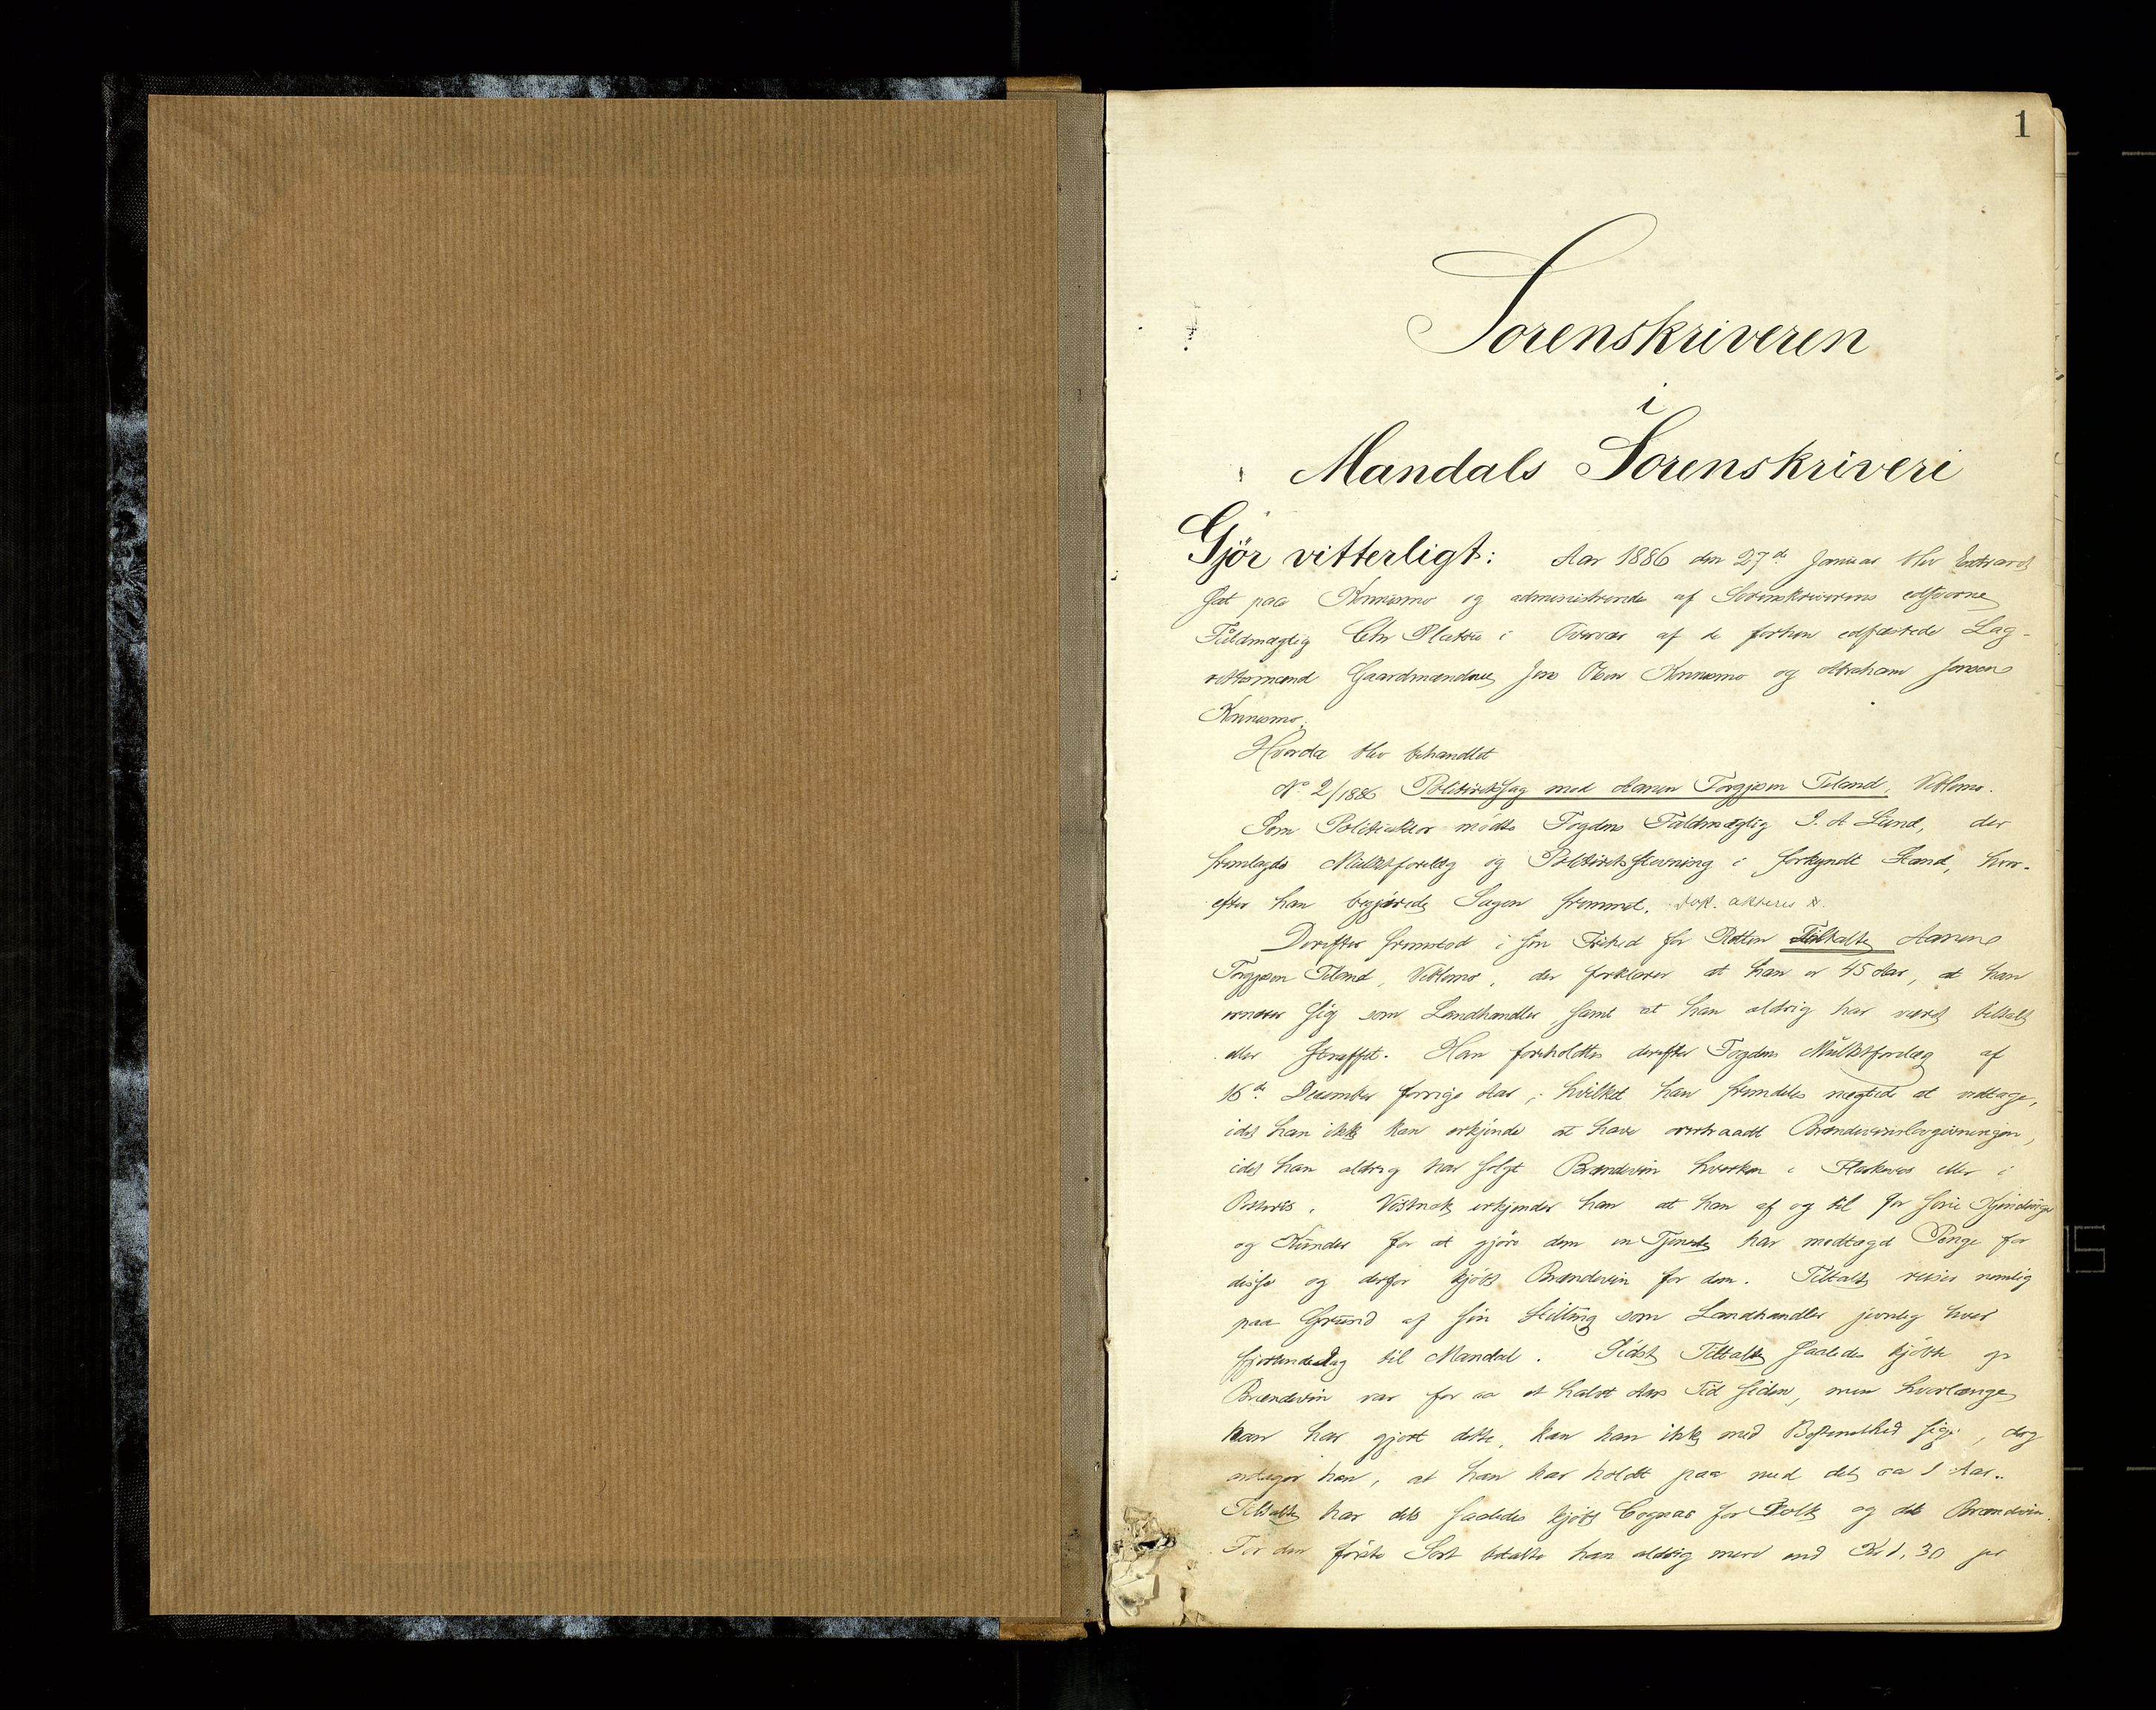 1
Sorenskriveren
i
Mandals Sorenskriveri
Gjör vitterligt: Aar 1886 den 27de Januar blev Extraret
sat paa Konnsmo og administrerede af Sorenskriverens edsvorne
Fuldmægtig Chr Platou i Overvær af de forhen edfæstede Lag-
rettesmænd Gaardmændene Jens Olsen Konnsmo og Abraham Jensen
Konnsmo.
Hvorda blev behandlet
No 2/1886 Politiretssag mod Aanen Torgjusen Teland,
Som Politiaktor mödte Fogdens Fuldmægtig I. A Lund, der
fremlagde Mulktforelæg og Politiretsstevning i forkyndt Stand, hvor-
efter han begjærede Sagen fremmet. Dok. akteres
Derefter fremstod i sin Frihed for Retten Tiltalte Aanen
Torgjusen Teland, der forklarer at han er 45 Aar, at han
ernærer sig som Landhandler, samt at han aldrig har været tiltalt
eller straffet. Han foreholdtes derefter Fogdens Mulktforelæg af
16de December forrige Aar, hvilket han fremdeles nægtede at vedtage,
idet han ikke kan erkjende at have overtraadt Brændevinslovgivningen,
idet han aldrig har solgt Brændevin hverken i Flaskevis eller i
Vistnok erkjender han at han af og til for sine Kjendinge
og Kunder for at gjöre dem en Tjeneste har modtaget Penge for
disse og derfor kjöbt Brændevin for dem. Tiltalte reiser nemlig
paa Grund af sin Stilling som Landhandler jevnlig hver
fjortende Dag til Mandal. Sidst Tiltalte saaledes kjöbte op
Brændevin var for ca et halvt Aars Tid siden, men hvorlænge
han har gjort dette, kan han ikke med Bestemthed sige, dog
antager han, at han har holdt paa med det ca 1 Aar.
Tiltalte har dels saaledes kjöbt Cognac for Folk og dels Brændevin.
For den förste Sort betalte han aldrig mere end Kr 1,30 pr